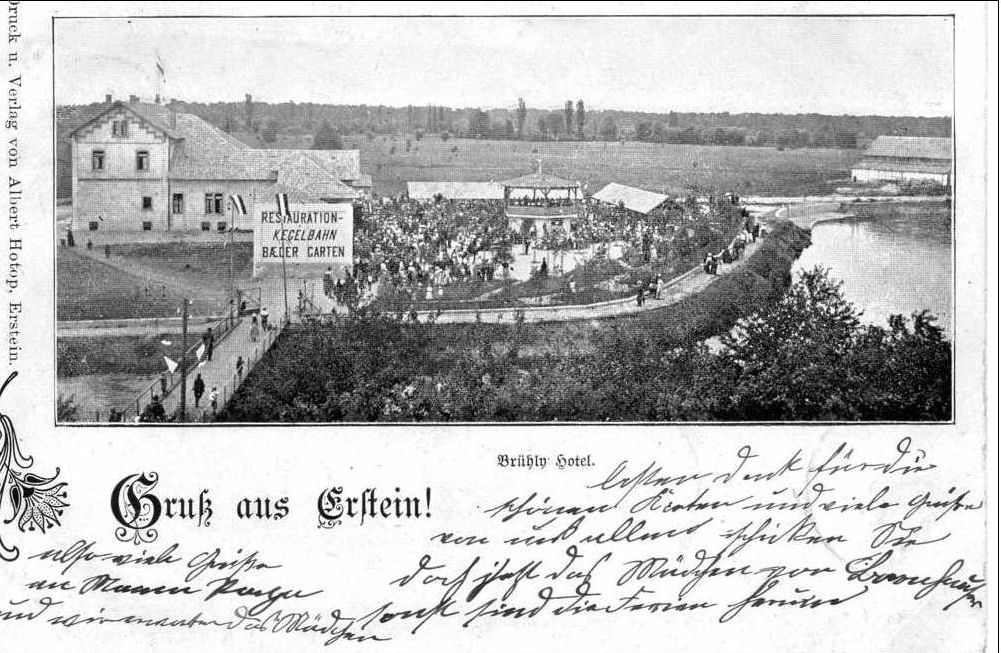 Druck u. Verlag von Albert Hotop, Erstein.
RESTAURATION-
KEGELBAHN
BÆDER GARTEN
Brühly Hotel.
Gruß aus Erstein!
besten Dank für die
schönen Karten und viele Grüße
von uns allens schicken Sie
doch jetzt das Mädchen von
sonst sind die Ferien herum
also viele Grüße
an Mama Papa
und wir erwarten das Mädchen